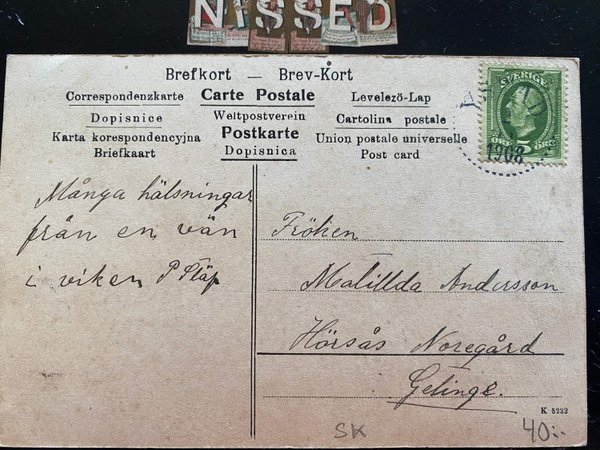 NISSED
Brefkort — Brev-Kort
Correspondenzkarte Carte Postale Levelezö-Lap
Dopisnice Weltpostverein Cartolina postale
Karta korespondencyjna Postkarte Union postale universelle
Briefkaart Dopisnica Post card
SVERIGE
5 ÖRE
1908
Många hälsningar
från en vän
i viken P
Fröken
Malillda Andersson
Hörsås Noregård
Gelinge.
K 5232
SK
40:-